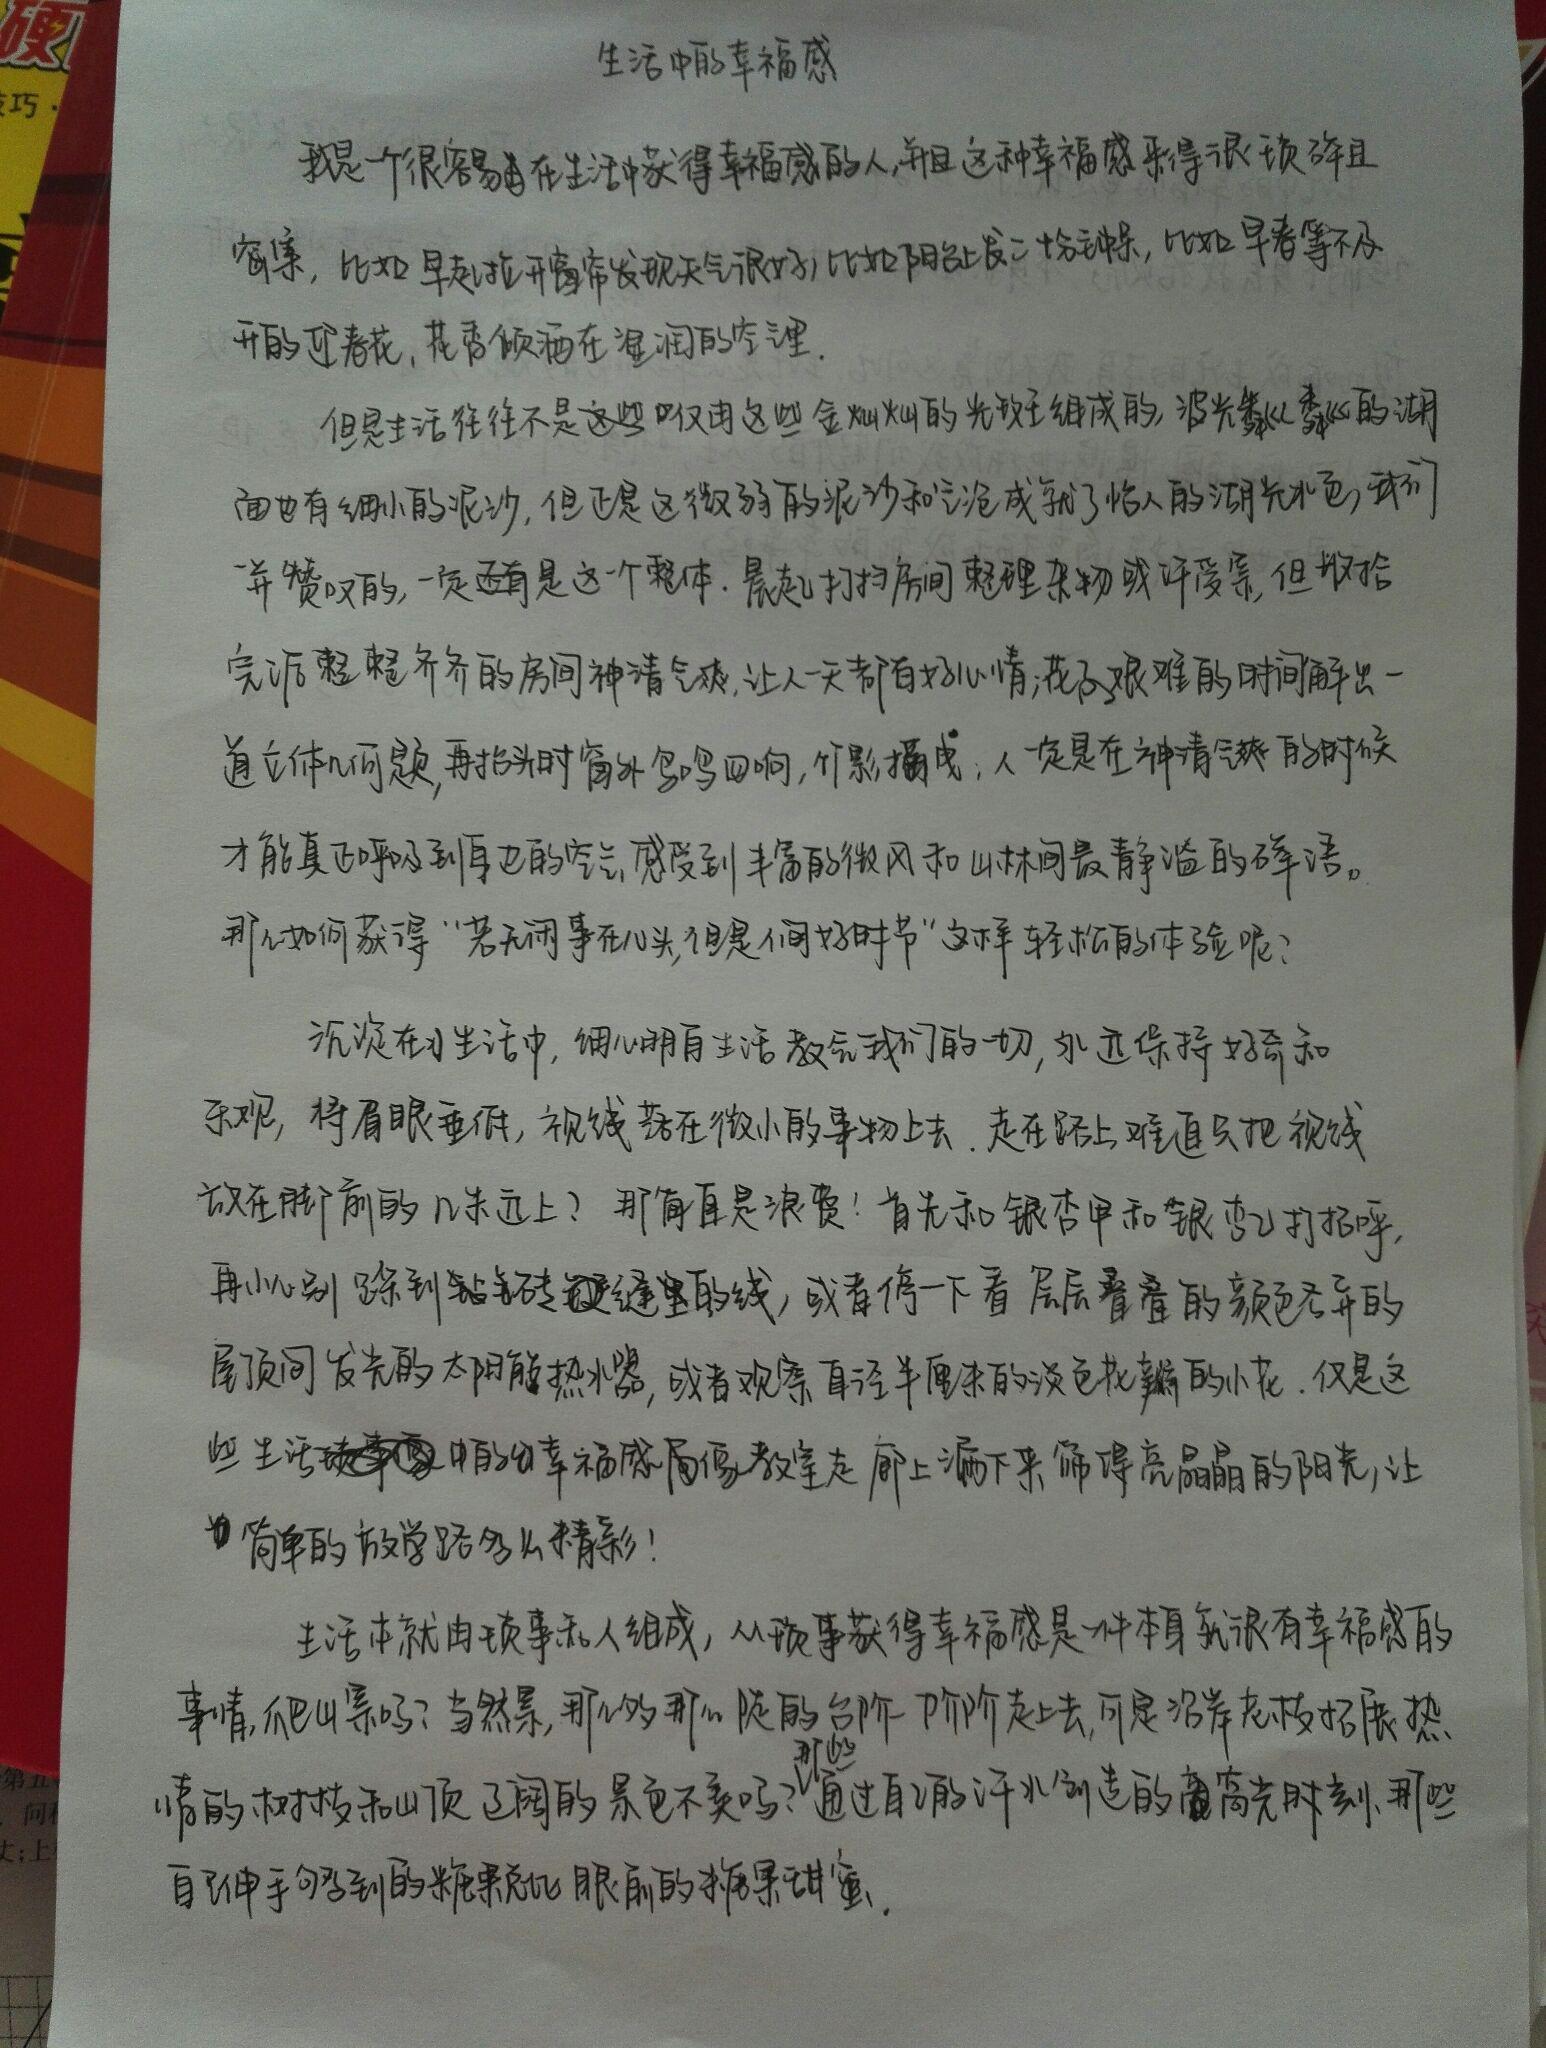 生活中的幸福感
我是一个很容易在生活中获得幸福感的人,并且这种幸福感来得很琐碎且
密集,比如早起拉开窗帘发现天气很好,比如阳台上发二十分钟呆,比如早春等不及
开的迎春花,花香倾洒在湿润的空气里.
但是生活往往不是仅由这些金灿灿的光斑组成的,波光粼粼的湖
面也有细小的泥沙,但正是这微弱的泥沙和成就了怡人的湖光水色,我们
一并赞叹的,一定是这个整体.晨起打扫房间整理杂物或许受累,但收拾
完后整整齐齐的房间神清气爽,让人一天都有好心情;花了艰难的时间解出一
道立体几何题,再抬头时窗外鸟鸣四响,竹影摇曳;人一定是在神清气爽的时候
才能真正呼吸到身边的空气,感受到丰富的微风和山林间最静谧的碎语。
那么如何获得“若无闲事在心头,但是人间好时节”这样轻松的体验呢?
沉淀在生活中,细心明白生活教会我们的一切,永远保持好奇和
乐观,将眉眼垂低,视线落在微小的事物上去.走在路上难道只把视线
放在脚前的几米远上?那简直是浪费!首先和银杏甲和银杏乙打招呼,
再小心别踩到砖缝里的线,或者停一下看层层叠叠的颜色各异的
屋顶间发光的太阳能热水器,或者观察直径半厘米的淡色花瓣的小花.仅是这
些生活中的幸福感就像教室走廊上漏下来筛得亮晶晶的阳光,让
简单的放学路多么精彩!
生活本就由琐事和人组成,从琐事获得幸福感是一件本身就很有幸福感的
事情,爬山累吗?当然累,那么多那么陡的台阶一阶阶走上去,可是沿岸老枝拓展热
情的树枝和山顶辽阔的景色不美吗?那些通过自己的汗水创造的高光时刻、那些
自己伸手够到的糖果总比眼前的糖果甜蜜.
硬
技巧·
第五
问